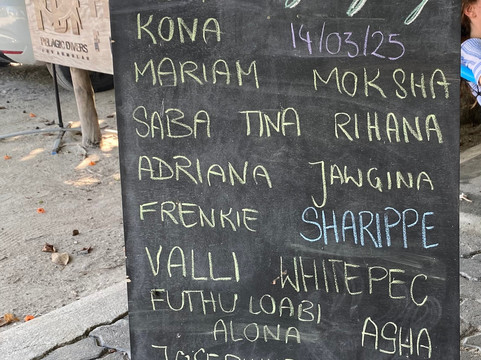 PELAGIC DIVERS
KONA 14/03/25
MARIAM MOKSHA
SABA TINA RIHANA
ADRIANA JAWGINA
FRENKIE SHARIPPE
VALLI WHITEPEC
FUTHU LOABI
ALONA ASHA